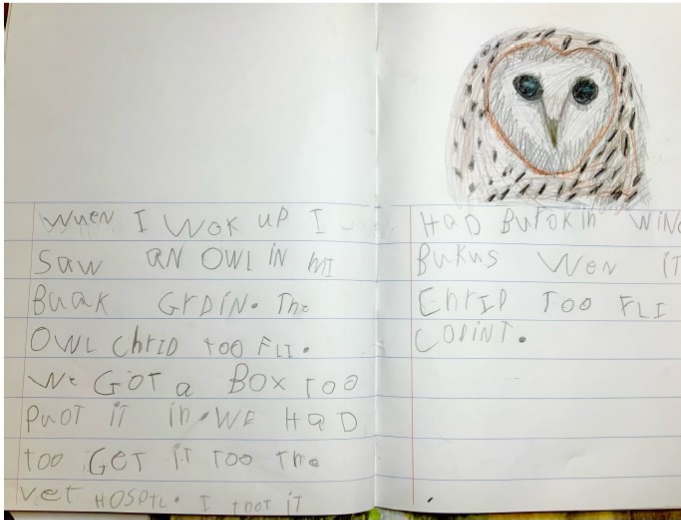 WHEN I WOK UP I
SAW AN OWL IN MI
BUAK GrDIN. The
OWL ChrID TOO FLI.
We GOT a BOX TOO
PUOT iT in. WE HAD
TOO GET iT TOO The
VeT HOSPTL. I THOT iT
HaD BUROKiN WiNG
BUKUS WeN iT
ChrID TOO FLI
CODiNT.